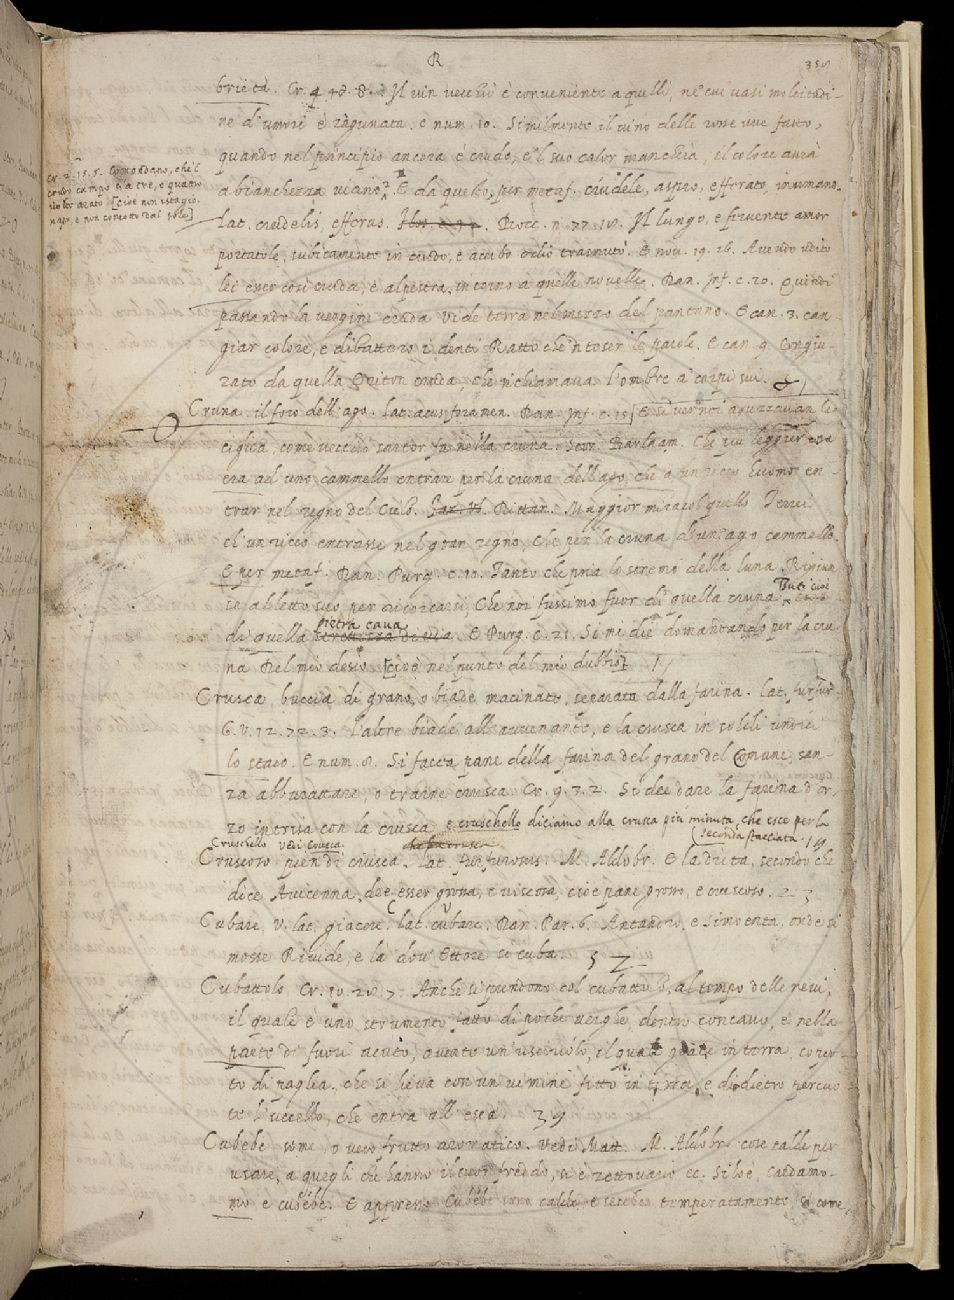 R
brietà. Cr. 4. 48. 8. Il vin vecchio è conveniente a quelli, ne' cui vasi moltitudi-
ne d'umori è ragunata. e num. 10. Similmente il vino delle rosse uve fatto,
quando nel principio ancora è crudo, e'l suo calor mancherà, il colore avrà
a bianchezza vicino. E da questo, per metaf. crudele, aspro, efferato, inumano.
Lat. crudelis, efferus. Bocc. n. 77. Il lungo, e fervente amor
portatole, subitamente in crudo, e acerbo odio trasmutò. E nov. 19. 26. Avendo udito
lei esser così cruda, e alpestra, intorno a quelle novelle. Dan. Inf. c. 20. Quindi
passando la vergine cruda Vide terra nel mezzo del pantano. E can. 3. can-
giar colore, e dibattero i denti Ratto che 'nteser le parole. E can. 9. Congiu-
rato da quella Eriton cruda, Che richiamava l'ombre a' corpi sui.
Cruna. il foro dell'ago. Lat. acus foramen. Dan. Inf. c. 15. E sì ver noi aguzzavan le
ciglia, come vecchio sartor fa nella cruna. Stor. Barlaam. Che più leggier cosa
era ad uno cammello entrare per la cruna dell'ago, che a un ricco huomo en-
trar nel regno del Cielo. Dittam. Maggior miracol quello
ch'un ricco entrasse nel gran regno, Che per la cruna d'un ago cammello.
E per metaf. Dan. Purg. c. 10. Tanto che pria lo stremo della luna Rigiun
se al letto suo per ricorcarsi, Che noi fussimo fuor di quella cruna
But. cioè
di quella pietra cava. E Purg. c. 21. Sì mi diè domandando per la cru-
na Del mio desio [cioè nel punto del mio dubbio]
Crusca, buccia di grano, o biade macinate, separata dalla farina. Lat. furfur.
G. V. 12. 72. 3. L'altre biade all'avvenante, e la crusca in soldi undici
lo staio. E num. 8. Si facea pane della farina del grano del Comune, san-
za abburattare, o trarne crusca. Cr. 9. 3. 2. Si dee dare la farina d'or-
zo intrisa con la crusca. e cruschello diciamo alla crusca più minuta, che esce per la
seconda stacciata.
Cruschello vedi Crusca.
Cruscoso pien di crusca. Lat. furfurosus. M. Aldobr. E la dieta, secondo che
dice Avicenna, dee esser grossa, e viscosa, cioè pane grosso, e cruscoso.
Cubare, V. lat. giacere. lat. cubare. Dan. Par. 6. Antandro, e Simoenta, onde si
mosse Rivide, e la dov'Ettore si cuba.
Cubattolo. Cr. 10. 28. 7. Anche si prendono col cubattolo, al tempo delle nevi,
il quale è uno strumento fatto di poche verghe, dentro concavo, e nella
parte di fuori acuto, avuto un usciuolo, il quale giace in terra, coper-
to di paglia, che si lieva con un vimine fitto in terra, e didietro percuo-
te l'uccello, che entra all'esca. 39
Cubebe seme, o vero frutto aromatico. Vedi Matt. M. Aldobr. cose calde per
usare, a quegli che hanno il cuor freddo, si è zettovario ec. Siloè, cardamo-
mo e cubebe. E appresso Cubebe sono calde e secche temperatamente, sì come
Cr. 2. 15. 5. Comandano, che'l
crudo campo si are, e quando
[cioè non istagio-
nato, e non concotto dal sole]